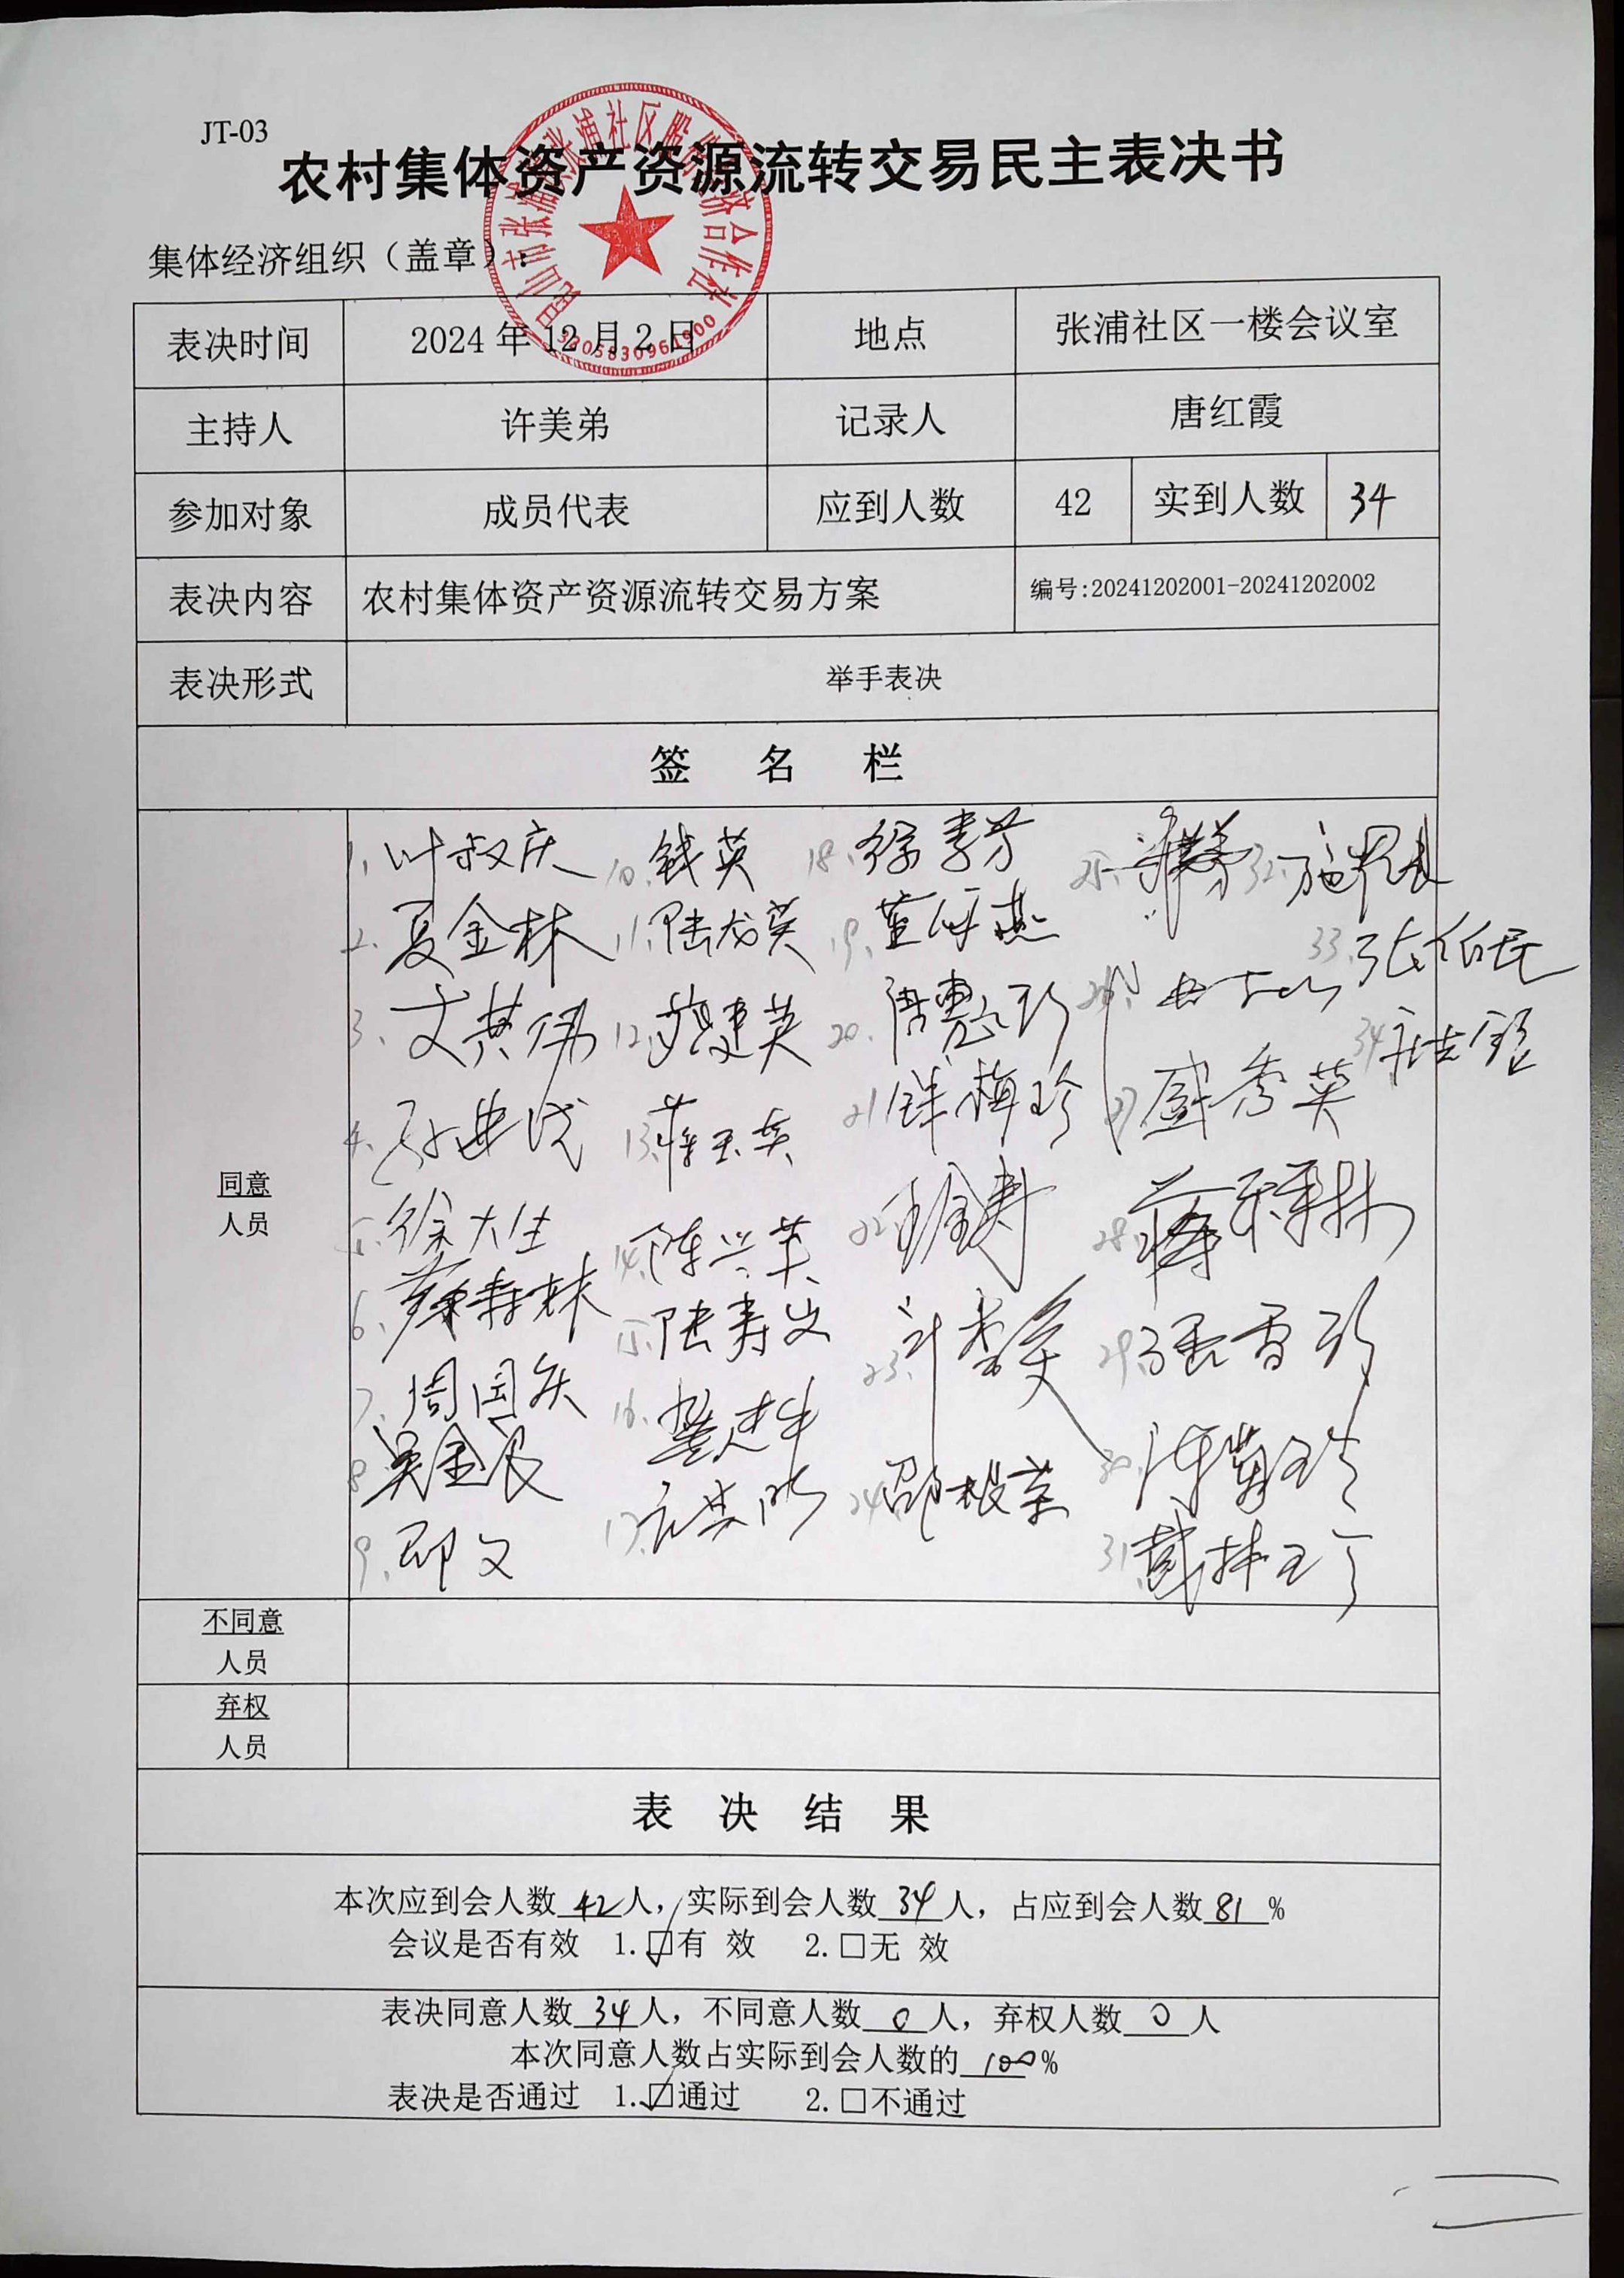 JT-03
农村集体资产资源流转交易民主表决书
集体经济组织（盖章）：
昆山市张浦镇张浦社区股份经济合作社
3205830961900
表决时间 2024年12月2日 地点 张浦社区一楼会议室
主持人 许美弟 记录人 唐红霞
参加对象 成员代表 应到人数 42 实到人数 34
表决内容 农村集体资产资源流转交易方案 编号:20241202001-20241202002
表决形式 举手表决
签 名 栏
同意
人员
1、叶叔庆 10、钱英 18、徐李芳 25、 32、
2、夏金林 11、陆龙英 19、 33、张伯民
3、 12、 20、唐惠珍 26、 34、
4、 13、蒋玉英 21、钱梅珍 27、盛秀英
5、徐大生 14、陈兴英 22、 28、
6、蔡寿林 15、陆寿父 23、 29、
7、周国庆 16、龚建中 24、邵根荣 30、
8、吴金良 17、 31、
9、邱文
不同意
人员
弃权
人员
表 决 结 果
本次应到会人数 42 人，实际到会人数 34 人，占应到会人数 81 %
会议是否有效 1.☑有 效 2.□无 效
表决同意人数 34 人，不同意人数 0 人，弃权人数 0 人
本次同意人数占实际到会人数的 100 %
表决是否通过 1.☑通过 2.□不通过